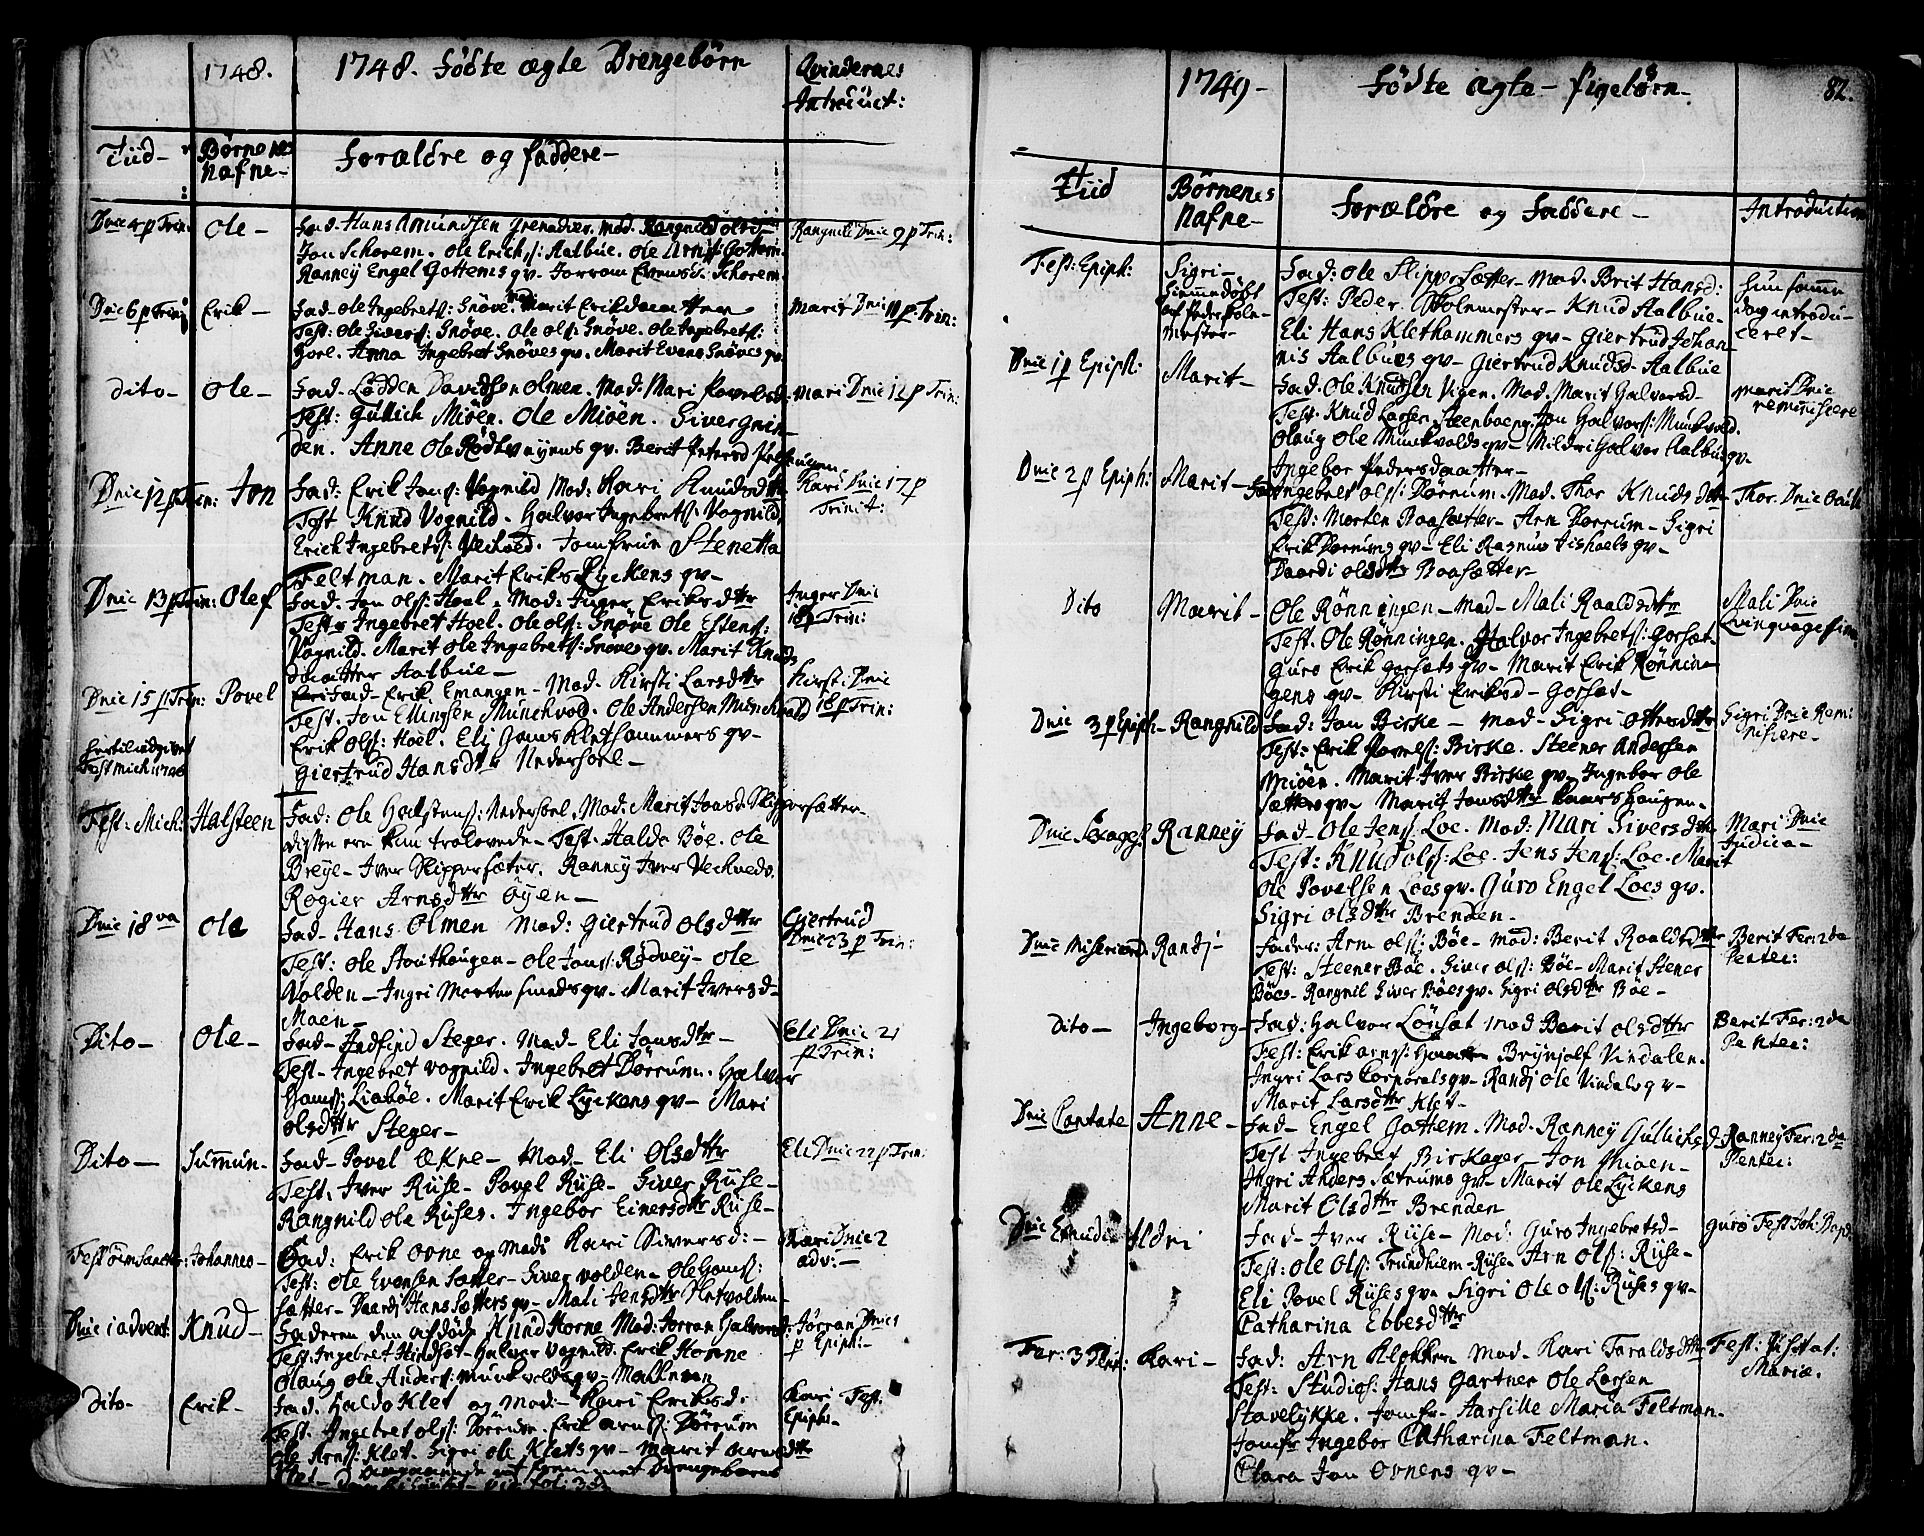 1748.
1748. Födte ægte Drengebörn
Qvindernes
Introduct:
Tiid-
Börnenes
Nafne-
Forældre og faddere-
Dnic 4 p Trin:
Ole-
Fad. Hans Amundsen Grenadeer. Mod. Rangnild Olsd-
Jon Schorem. Ole Erichs: Aalbue. Ole Arns: Gottem
Ranney Engel Gottems qv. Jorran Evensd. Schorem
Rangnild Dnic 9 p Trin:
Dnic 6 p Trin:
Erik-
Fad- Ole Ingebrets: Snöve. Mod. Marit Eriksdaatter
Test: Ole Sivers: Snöve. Ole Ols: Snöve. Ole Ingebrets:
Hoel. Anna Ingebret Snöves qv. Marit Evens Snöves qv
Marit Dnic 11 p Trin:
dito-
Ole-
Fad- Lodden Davidsen Olmen. Mod: Mari Povelsd.
Test: Gullich Mioen. Ole Mioen. Siver grin
den. Anne Ole Rödtvøyens qv. Berit Petersd
Mari Dnic 12 p Trin:
Dnic 12 p Trin:
Jon
Fad: Erik Jons: Vognild Mod: Kari Knudsdttr
Test. Knud Vognild. Halvor Ingebrets: Vognild
Erich Ingebrets: Veckved. Jomfrue Stenetta
Feltman. Marit Eriks Lyckens qv-
Kari Dnic 17 p
Trinit:
Dnic 13 p Trin:
Olef
Fad. Jon Ols: Hoel. Mod: Inger Eriksdttr
Test: Ingebret Hoel. Ole Ols: Snöve Ole Estens:
Vognild. Marit Ole Ingebrets: Snoves qv. Marit Knuds
daatter Aalbue-
Inger Dnic
18 p Trin:
Dnic 15 p Trin:
Povel
Fad- Erik Emangen- Mod. Kirsti Larsdttr
Test. Jon Ellingsen Munchvold. Ole Andersen Munckvold
Erik Ols: Hoel. Eli Hans Klethammers qv-
Giertrud Hansdttr Nederhoel-
Kirsti Dnic
18 p Trin:
Test: Mich:
Halsteen
Fad: Ole Halstens: Nederhoel. Mod: Marit Jonsd. Skipperfætter-
disse ere kun trolovede- Test. Haldo Böe. Ole
Breye- Iver Skippersæter. Ranney Iver Veckveds.
Rogier Arnsdttr Öyen-
Dnic 18va
Ole
Fad- Hans Olmen Mod: Giertrud Olsdttr
Test: Ole Stouthaugen- Ole Jons: Rödvey- Ole
Volden- Ingri Morten smeds qv. Marit Iversd-
Moen-
Giertrud
Dnic 23 p Trin:
Dito-
Ole-
Fad- Indfind Steger. Mod- Eli Jonsdttr-
Test- Ingebret Vognild. Ingebret Dörrum. Halvor
Hans: Liaböe. Marit Erik Lyckens qv- Mari
Olsdttr Steger-
Eli Dnic 21
p Trin:
Dito-
Sumun-
Fad- Povel Økne- Mod- Eli Olsdttr
Test. Iver Riise- Povel Riise- Siver Riise-
Rangnild Ole Riises. Ingebor Einersdttr Riise-
Eli Dnic 22 p Trin:
Fest Om Sanct:
Johannes-
Fad: Erik Ovne og Mod: Kari Siversd:-
Test: Ole Evensen Sætter- Siver Volden- Ole Hans:
Sætter- Baardi Hans Sætters qv- Mali Jensdttr Kletvolden-
Kari Dnic 2
adv:-
Dnic 1 advent:
Knud-
Faderen den afdöde Knud Horne Mod: Jorran Halvorsd:
Test: Ingebret Hindset- Halvor Vognild. Erik Horne
Olaug Ole Anders: munkvolds qv- Malleren
Jörran Dnic 1
p Epiph:-
dito-
Erik-
Fad. Haldo Klet og Mod:- Kari Eriksd.
Test. Ingebret Ols: Dörrum. Erik Arns: Dörrum
Ole Arns: Klet. Sigri Ole Klets qv- Marit Arnsdttr
Kari Fest.
Epiph:-
1749-
Födte ægte- Pigebörn-
82.
Tiid
Börnenes
Nafne-
Forældre og Faddere-
Introduction
Fest: Epiph:
Sigri-
Hiemmedöbt
af Peder Hol-
mester-
Fad: Ole Slippersætter- Mod. Brit Hansd:
Test: Peder Holmester- Knud Aalbue-
Eli Hans Klethammers qv- Giertrud Johan
nis Aalbues qv- Giertrud Knudsd- Aalbue
hun samme
dag introdu-
ceret-
Dnic 1 p Epiph:
Marit-
Fad: Ole Knudsen Vigen. Mod. Marit Halvorsd-
Test. Knud Larsen Steenboeng. Jon Halvors: Munkvold.
Olaug Ole Munckvolds qv- Mildri Halvor Aalbues qv-
Ingebor Pedersdaatter-
Marit Dnic
reminiscere
Dnic 2 p Epiph:
Marit-
Fad. Ingebret Ols: Dörrum. Mod. Thor Knudsdttr.
Test: Morten Baasæter- Arn Dorrum- Sigri
Erik Dorrums qv- Eli Rasmus Fishaels qv-
Baardi Olsdttr Baasætter-
Thor. Dnic Oculi
Dito
Marit-
Ole Rönningen- Mod- Mali Roaldsdttr
Test. Ole Rönningen. Halvor Ingebrets: Gorset-
Guro Erik Gorsets qv- Marit Erik Rönnin-
gens qv- Kirsti Eriksd- Gorset-
Mali Dnic
Qvinqvagesima
Dnic 3 p Epiph-
Rangnild
Fad: Jon Birke- Mod- Sigri Ottesdttr
Test: Erik Povels: Birke. Steener Andersen
Mioen. Marit Iver Birke qv- Ingebor Ole
Sætters qv- Marit Jonsdttr Kaarshaugen-
Sigri Dnic Remi
niscere-
Dnic Sexages:
Ranney
Fad- Ole Jens: Loe. Mod: Mari Siversdttr
Test: Knud Ols: Loe. Jens Jens: Loe. Marit
Ole Povelsen Loes qv. Guro Engel Loes qv.
Sigri Olsdttr Brenden-
Mari Dnic
Judica-
Dnic Misericord:
Randi-
Fader: Arn Ols: Böe- Mod: Berit Roaldsdttr
Test: Steener Böe. Siver Ols: Böe- Marit Stener
Böes- Rangnil Siver Böes qv. Sigri Olsdttr Böe-
Berit Fer: 2da
Pentec:
Dito-
Ingeborg-
Fad: Halvor Lönset Mod Berit Olsdttr
Test: Erik Arns: Brynjolf Vindalen.
Ingri Lars Corporals qv- Randi Ole Vindals qv-
Marit Larsdttr Klet-
Berit Fer: 2da
Pentec:
Dnic Cantate
Anne-
Fad- Engel Gottem. Mod. Ranney Gullichsd.
Test Ingebret Birkager- Jon Mioen-
Ingri Anders Sætrums qv- Marit Ole Lyckens
Marit Olsdttr Brenden
Ranney Fer: 2da
Pentec:
Dnic Exaudi
Aldri
Fad- Iver Riise- Mod: Guro Ingebretsd-
Test: Ole Ols: Trundhiem- Riise- Arn Ols: Riise-
Eli Povel Riises qv- Sigri Ole Ols: Riises qv-
Catharina Ebbesdttr
Guro Fest Joh: Bapt
Fer: 3 Pent:
Kari-
Fad: Arn Klokker Mod- Kari Taraldsdttr
Test: Studios: Hans Gartner Ole Larsen
Stavelykke. Jomfr- Aarsille Maria Feltman-
Jomfr Ingebor Catharina Feltman.
Clara Jon Ovnens qv-
Fest: Visitat:
Mariæ.